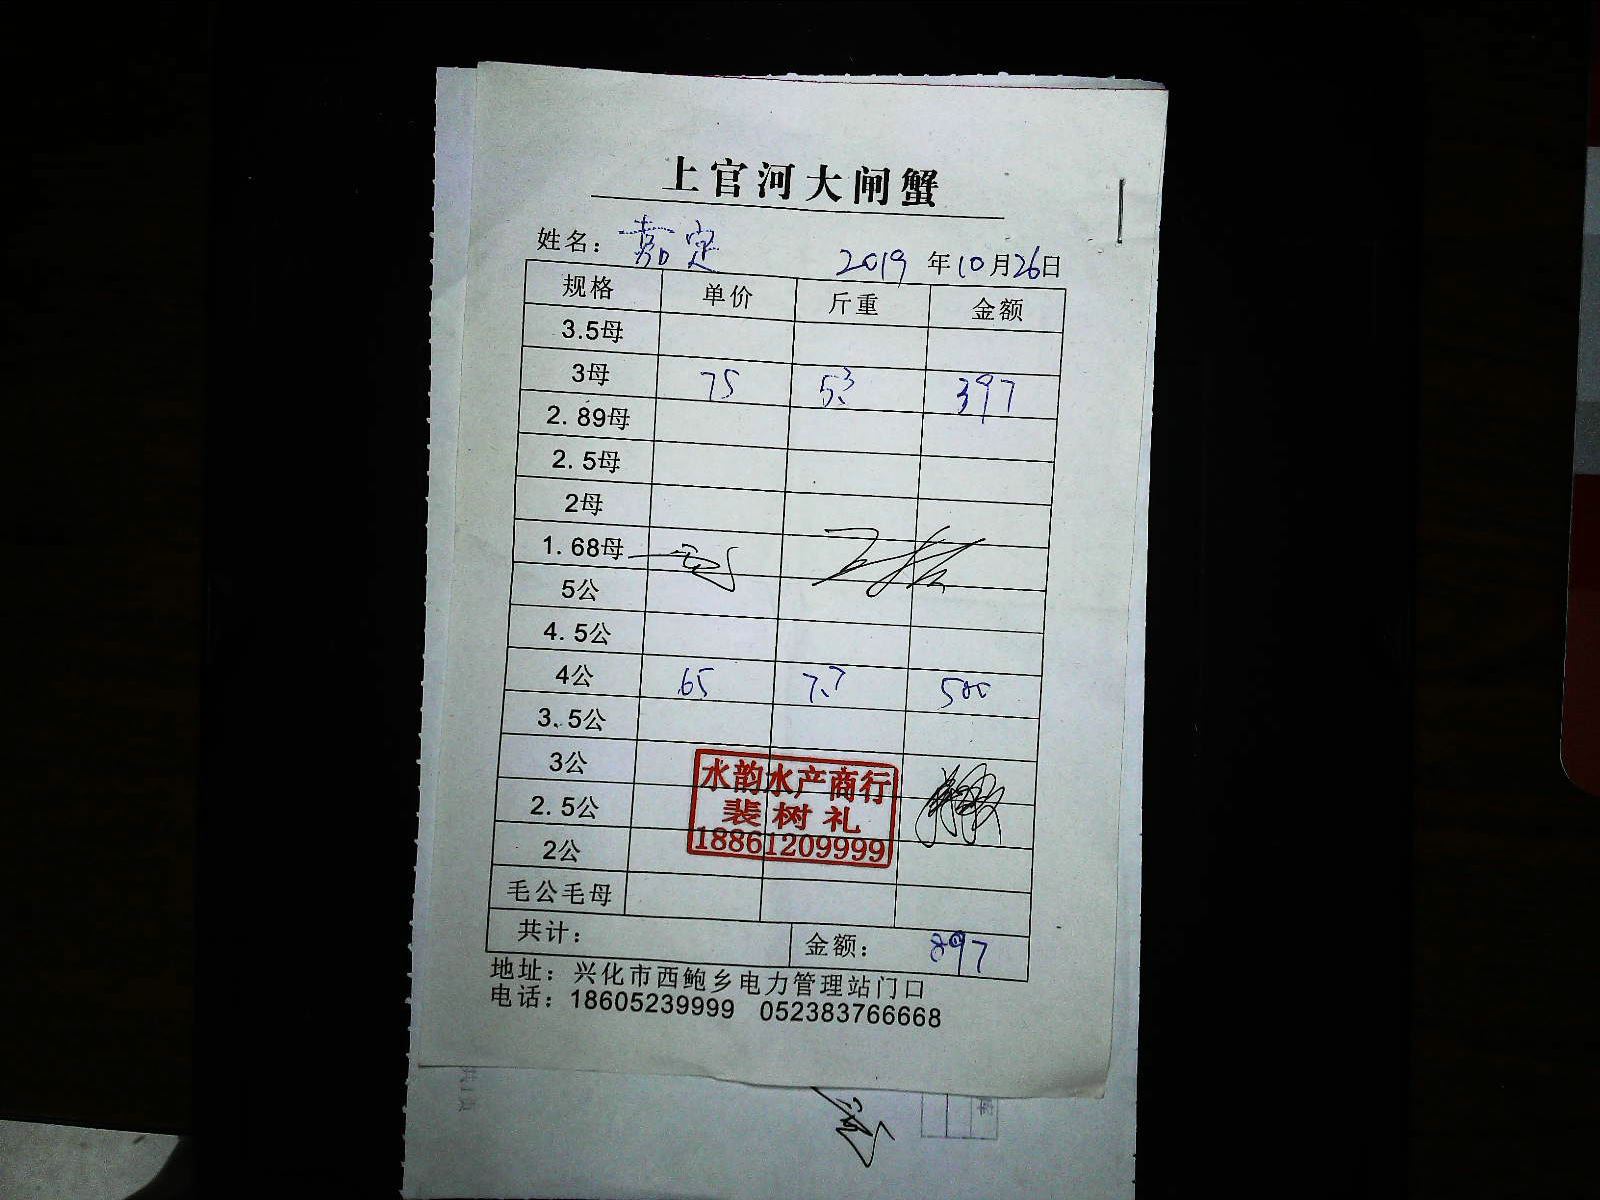 上官河大闸蟹
姓名：嘉定 2019年10月26日
规格 单价 斤重 金额
3.5母
3母 75 5.3 397
2.89母
2.5母
2母
1.68母
5公
4.5公
4公 65 7.7 500
3.5公
3公
2.5公
2公
毛公毛母
水韵水产商行
裴树礼
18861209999
共计： 金额：897
地址：兴化市西鲍乡电力管理站门口
电话：18605239999 052383766668